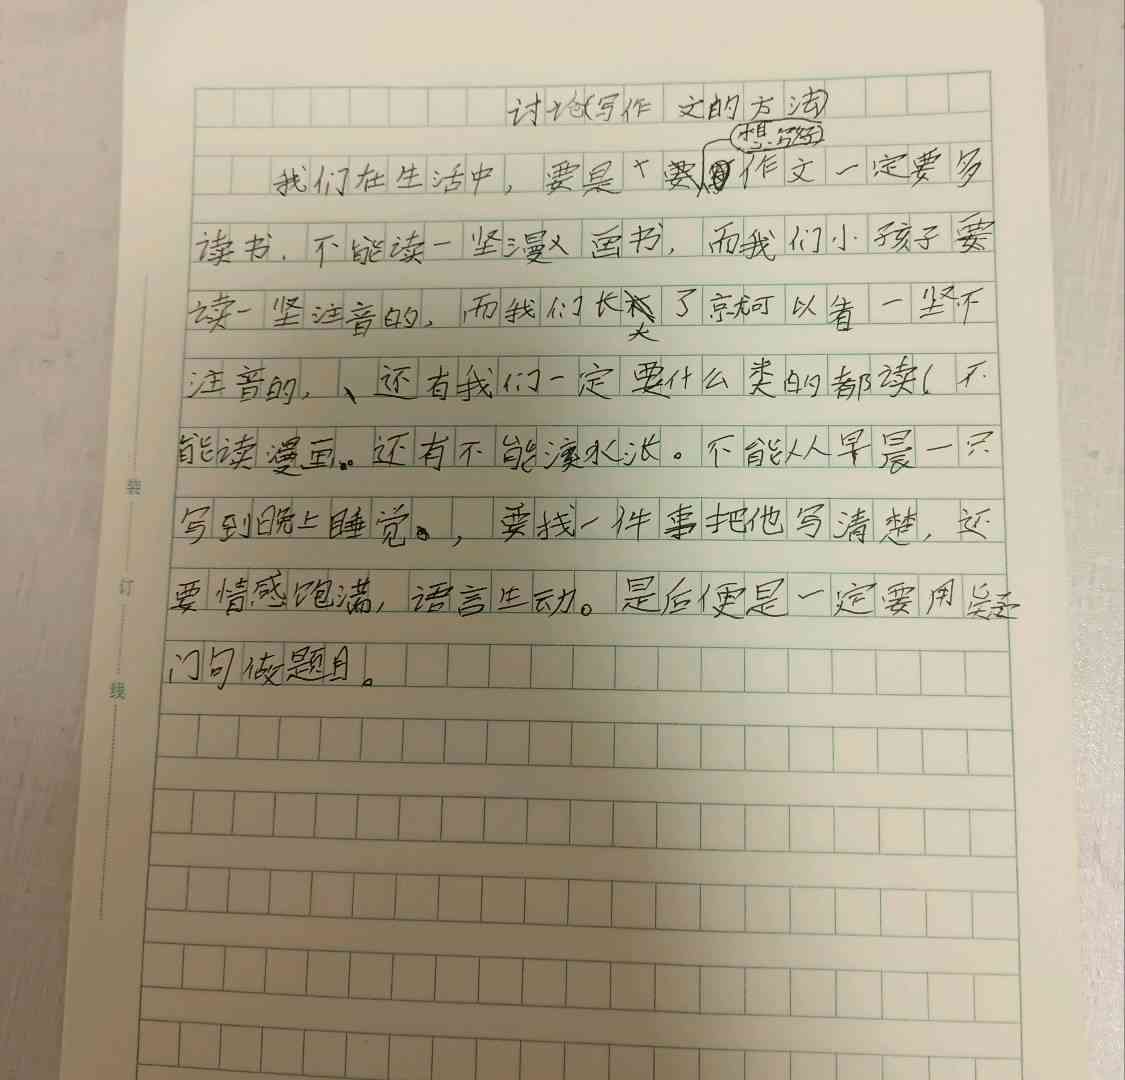 讨论写作文的方法
想写好
我们在生活中，要是要作文一定要多
读书．不能读一坚漫画书，而我们小孩子要
读一坚注音的，而我们长大了就可以看一坚不
注音的，、还有我们一定要什么类的都读（不
能读漫画。还有不能流水涨。不能从早晨一只
写到晚上睡觉。，要找一件事把他写清楚，还
要情感饱满，语言生动。是后便是一定要用疑
门句做题目。
装
订
线